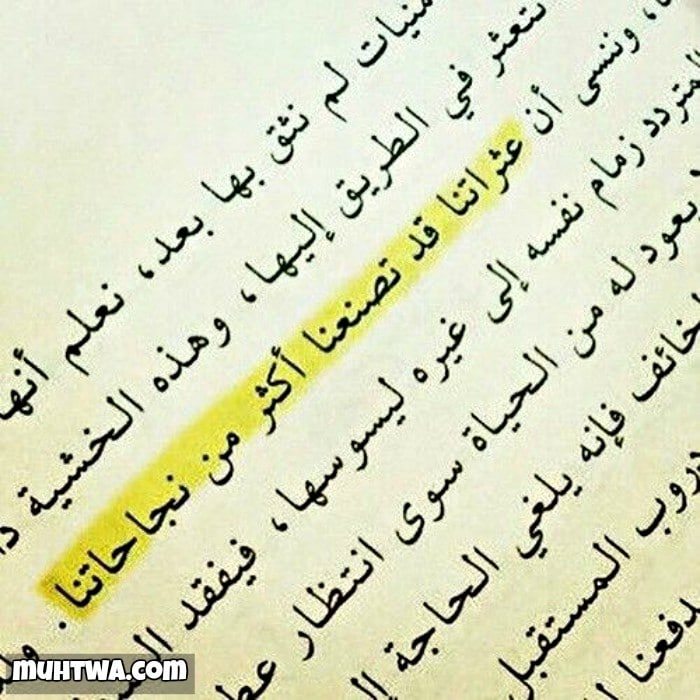 منيات لم نثق بها بعد، نعلم أنها
نتعثر في الطريق إليها، وهذه الخشية
وننسى أن عثراتنا قد تصنعنا أكثر من نجاحاتنا.
المتردد زمام نفسه إلى غيره ليسوسها، فيفقد
يعود له من الحياة سوى انتظار
خائف فإنه يلغي الحاجة
دروب المستقبل
دفعنا
MUHTWA.COM